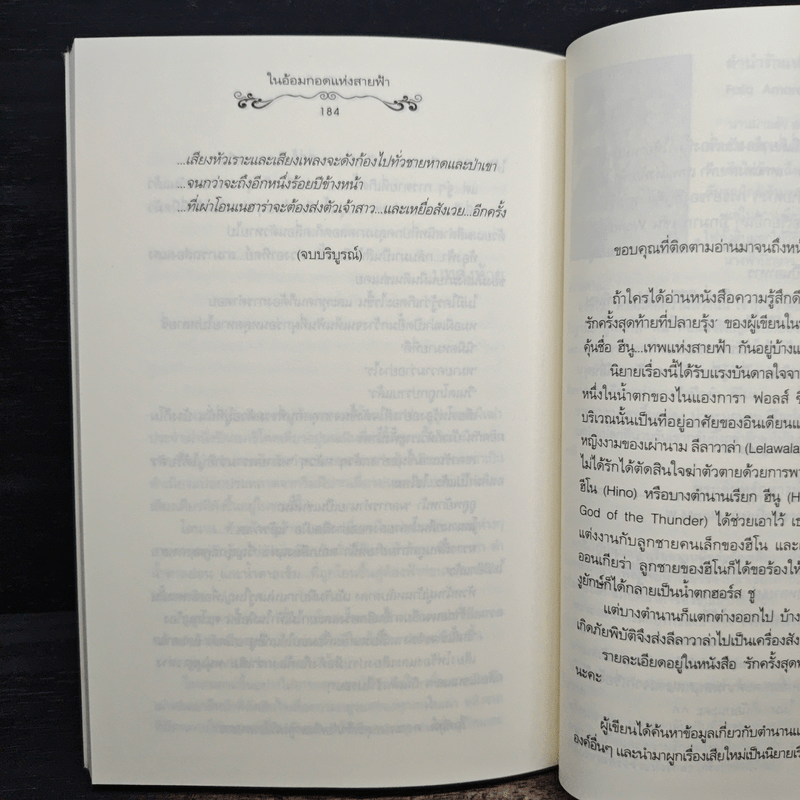 ในอ้อมกอดแห่งสายฟ้า
184
...เสียงหัวเราะและเสียงเพลงจะดังก้องไปทั่วชายหาดและป่าเขา
...จนกว่าจะถึงอีกหนึ่งร้อยปีข้างหน้า
...ที่เผ่าโอนเนฮาร่าจะต้องส่งตัวเจ้าสาว...และเหยื่อสังเวย...อีกครั้ง
(จบบริบูรณ์)
ขอบคุณที่ติดตามอ่านมาจนถึงหน้
ถ้าใครได้อ่านหนังสือความรู้สึกดี
รักครั้งสุดท้ายที่ปลายรุ้ง' ของผู้เขียนใน
คุ้นชื่อ ฮีนู...เทพแห่งสายฟ้า กันอยู่บ้าง
นิยายเรื่องนี้ได้รับแรงบันดาลใจจา
หนึ่งในน้ำตกของไนแองการา ฟอลส์
บริเวณนั้นเป็นที่อยู่อาศัยของอินเดียนแ
หญิงงามของเผ่านาม ลีลาวาล่า (Lelawala
ไม่ได้รักได้ตัดสินใจฆ่าตัวตายด้วยการพา
ฮีโน (Hino) หรือบางตำนานเรียก ฮีนู (H
God of the Thunder) ได้ช่วยเอาไว้ เธ
แต่งงานกับลูกชายคนเล็กของฮีโน และเ
ออนเกียร่า ลูกชายของฮีโนก็ได้ขอร้องให้
งูยักษ์ก็ได้กลายเป็นน้ำตกฮอร์ส ชู
แต่บางตำนานก็แตกต่างออกไป บ้าง
เกิดภัยพิบัติจึงส่งลีลาวาล่าไปเป็นเครื่องสัง
รายละเอียดอยู่ในหนังสือ 'รักครั้งสุด
นะคะ
ผู้เขียนได้ค้นหาข้อมูลเกี่ยวกับตำนานแ
องค์อื่นๆ และนำมาผูกเรื่องเสียใหม่เป็นนิยายเรื